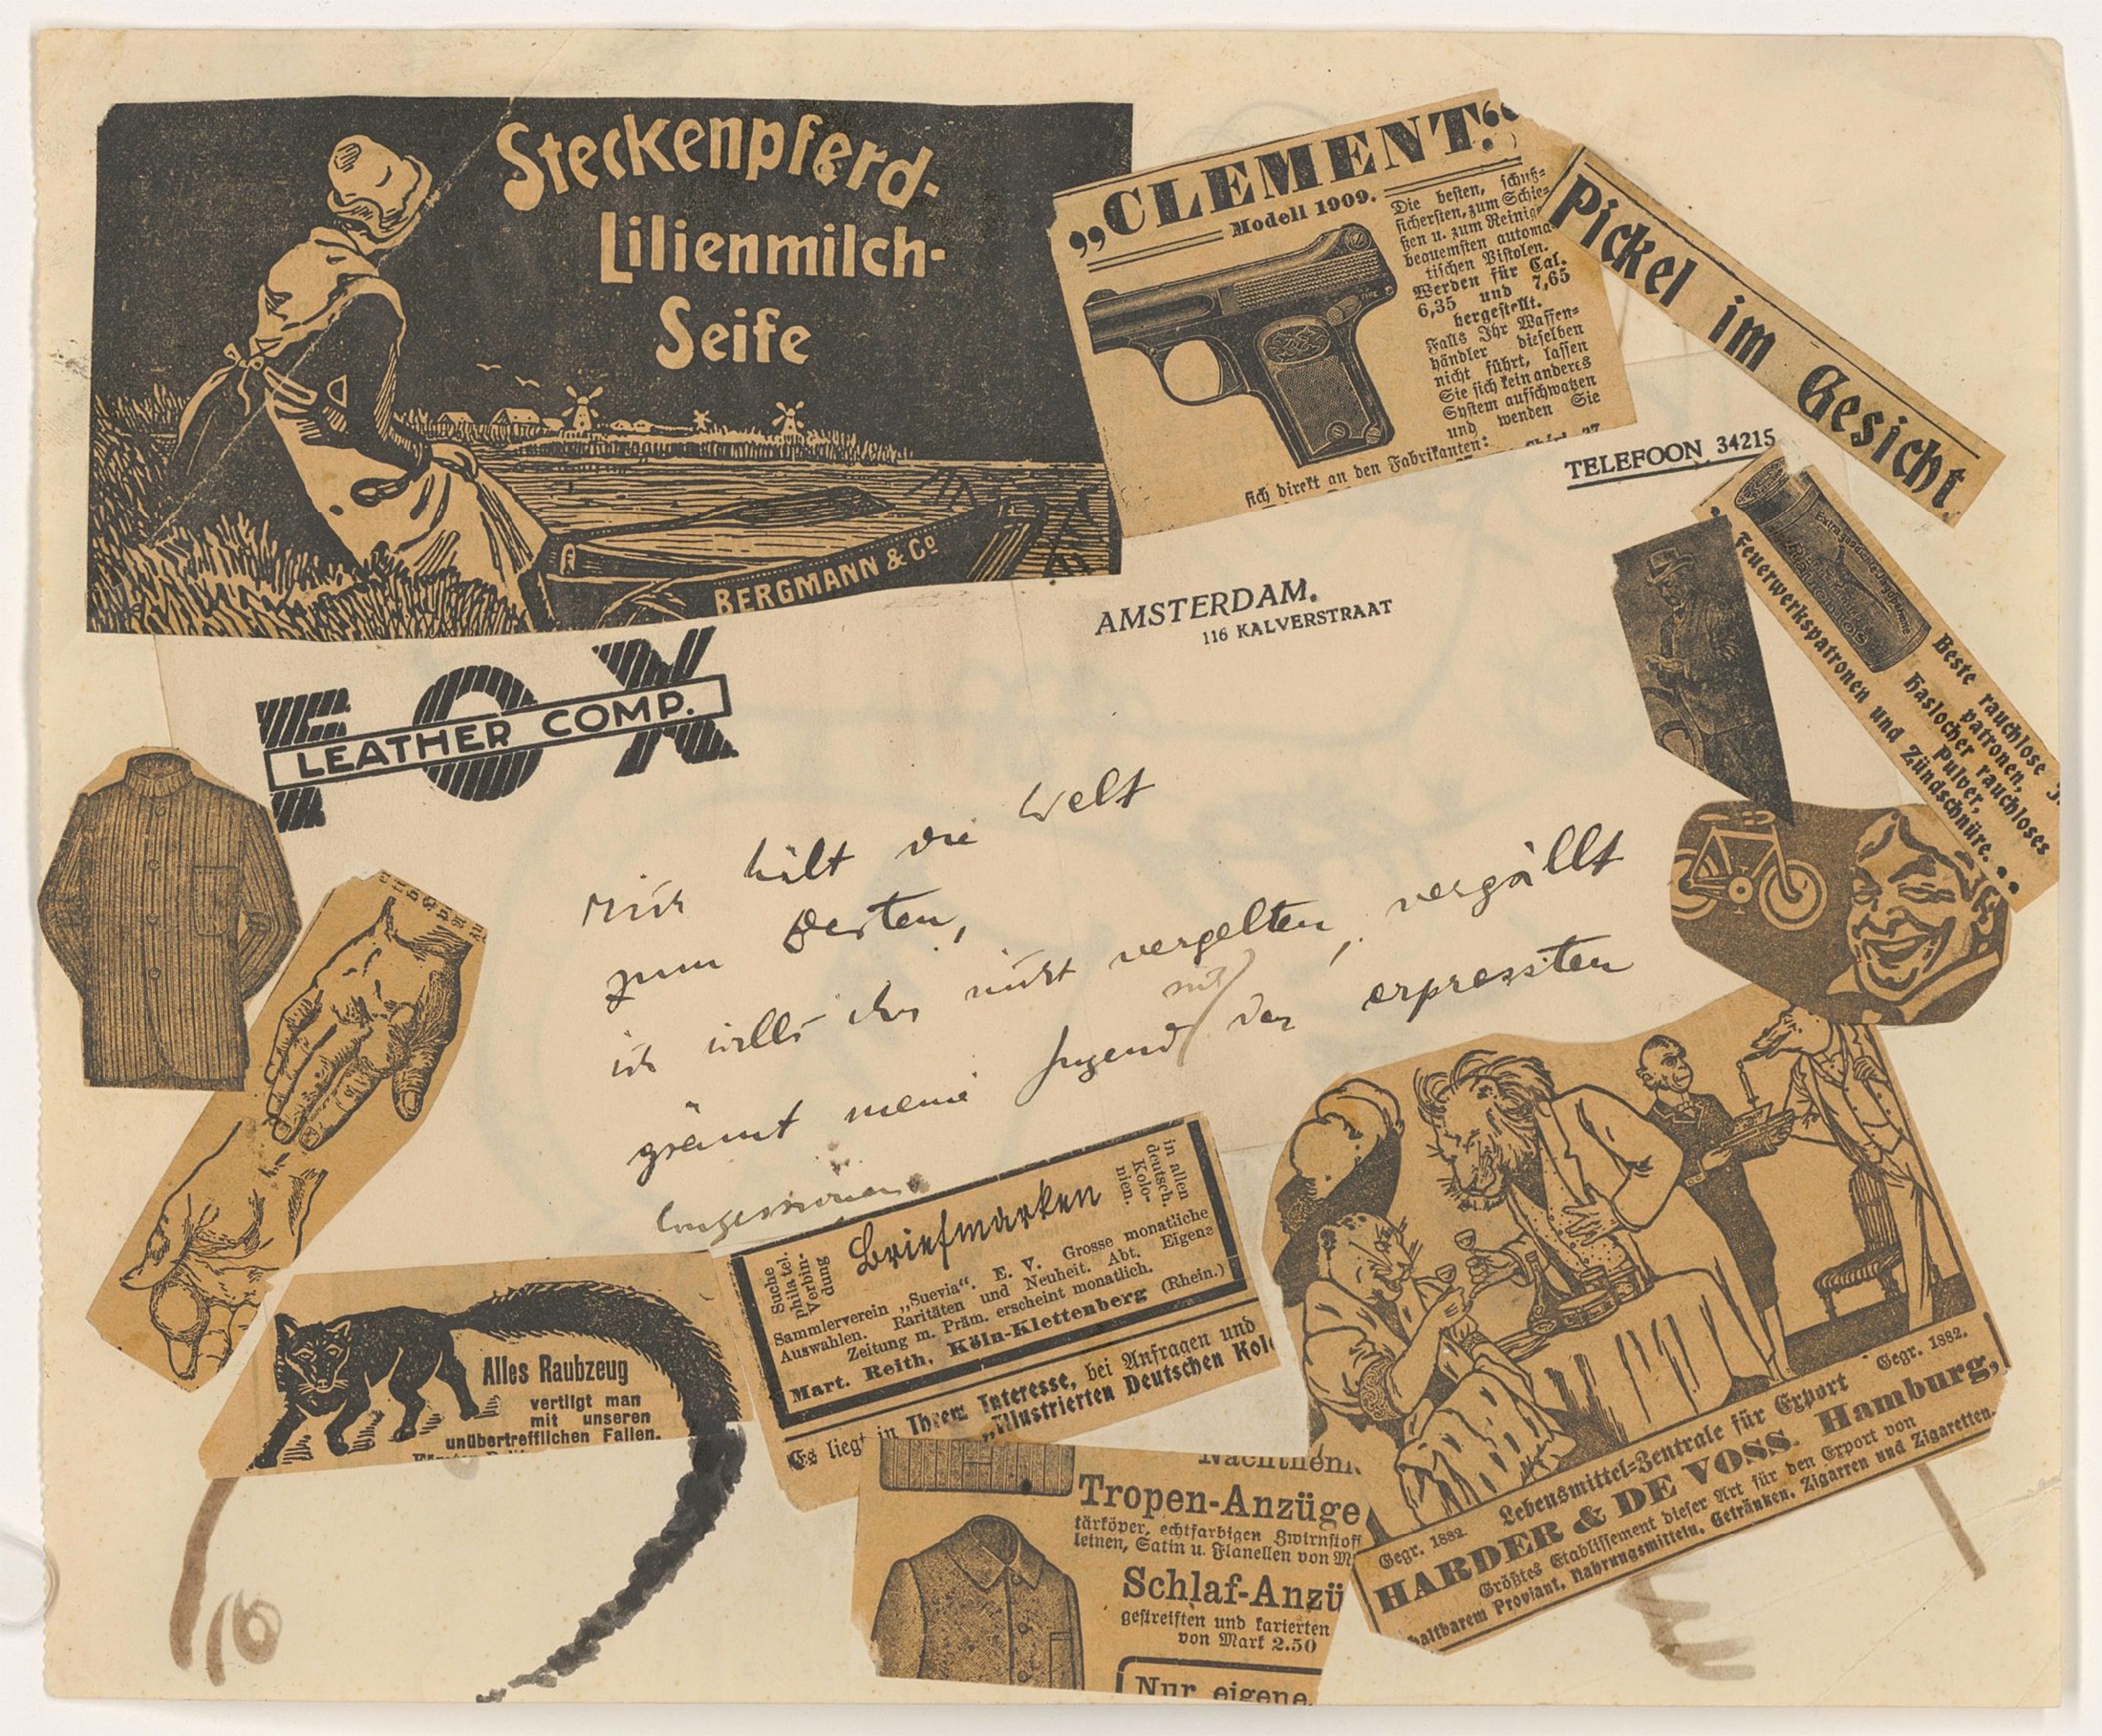 Steckenpferd-
Lilienmilch-
Seife
BERGMANN & Co
„CLEMENT“
Modell 1909.
Die besten, schuß-
sichersten, zum Schie-
ßen u. zum Reinig
bequemsten automa
tischen Pistolen.
Werden für Cal.
6,35 und 7,65
hergestellt.
Falls Ihr Waffen-
händler dieselben
nicht führt, lassen
Sie sich kein anderes
System aufschwatzen
und wenden Sie
sich direkt an den Fabrikanten:
Pickel im Gesicht
TELEFOON 34215
Beste rauchlose
patronen,
Haslocher rauchloses
Pulver,
Feuerwerkspatronen und Zündschnüre.
AMSTERDAM.
116 KALVERSTRAAT
FOX
LEATHER COMP.
Mich hält die Welt
zum Besten,
ich wills ihr nicht vergelten, vergällt
mit
grämt meine Jugend der erpressten
Suche
philatel.
Verbin-
dung
Briefmarken
in allen
deutsch.
Kolo-
nien.
Sammlerverein „Suevia“. E. V. Grosse monatliche
Auswahlen. Raritäten und Neuheit. Abt. Eigene
Zeitung m. Präm. erscheint monatlich.
Mart. Reith, Köln-Klettenberg (Rhein.)
Es liegt in Ihrem Interesse, bei Anfragen und
„Illustrierten Deutschen Kol
Alles Raubzeug
vertilgt man
mit unseren
unübertrefflichen Fallen.
Tropen-Anzüge
tärköper, echtfarbigen Zwirnstoff
leinen, Satin u. Flanellen von M
Schlaf-Anzü
gestreiften und karierten
von Mark 2.50
Nur eigene
Gegr. 1882. Lebensmittel-Zentrale für Export Gegr. 1882.
HARDER & DE VOSS. Hamburg,
Größtes Etablissement dieser Art für den Export von
haltbarem Proviant, Nahrungsmitteln, Getränken, Zigarren und Zigaretten.